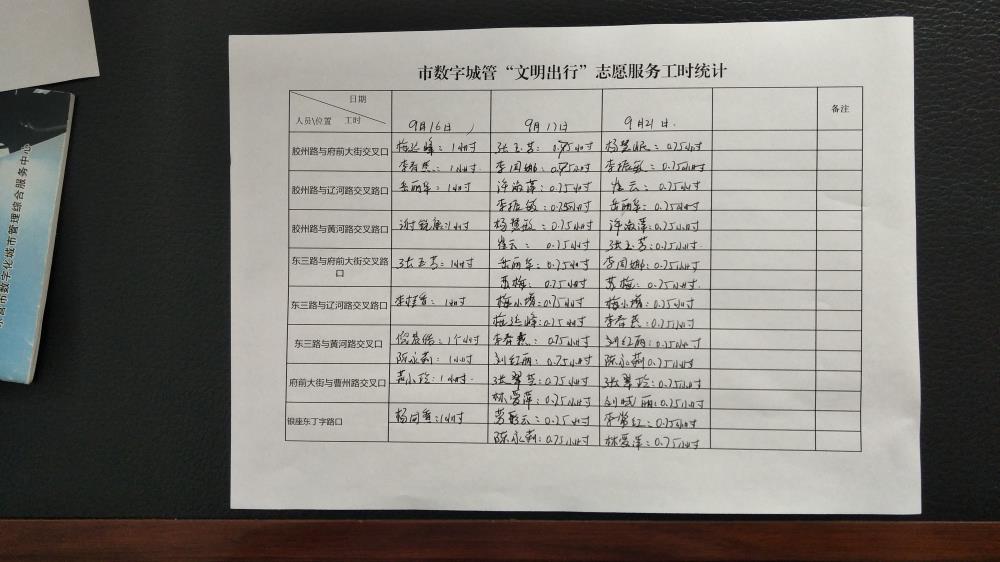 市数字城管“文明出行”志愿服务工时统计
日期
人员\位置 工时
9月16日 9月17日 9月21日 备注
胶州路与府前大街交叉口 梅延峰：1小时 张玉芳：0.75小时 0.75小时
李春燕：1小时 李周娜：0.75小时 李振敏：0.75小时
胶州路与辽河路交叉路口 岳丽华：1小时 许淑萍：0.75小时 崔云：0.75小时
李振敏：0.75小时 岳丽华：0.75小时
胶州路与黄河路交叉口 1小时 0.75小时 许淑萍：0.75小时
崔云：0.75小时 张玉芳：0.75小时
东三路与府前大街交叉路口 张玉芳：1小时 岳丽华：0.75小时 李周娜：0.75小时
苏梅：0.75小时 苏梅：0.75小时
东三路与辽河路交叉路口 李桂香：1小时 0.75小时 0.75小时
梅延峰：0.75小时 李春燕：0.75小时
东三路与黄河路交叉口 1个小时 李春燕：0.75小时 刘红丽：0.75小时
陈永莉：1小时 刘红丽：0.75小时 陈永莉 0.75小时
府前大街与曹州路交叉口 1小时 0.75小时 0.75小时
林爱萍：0.75小时 0.75小时
银座东丁字路口 1小时 0.75小时 李常红：0.75小时
陈永莉：0.75小时 林爱萍：0.75小时
东营市数字化城市管理综合服务中心